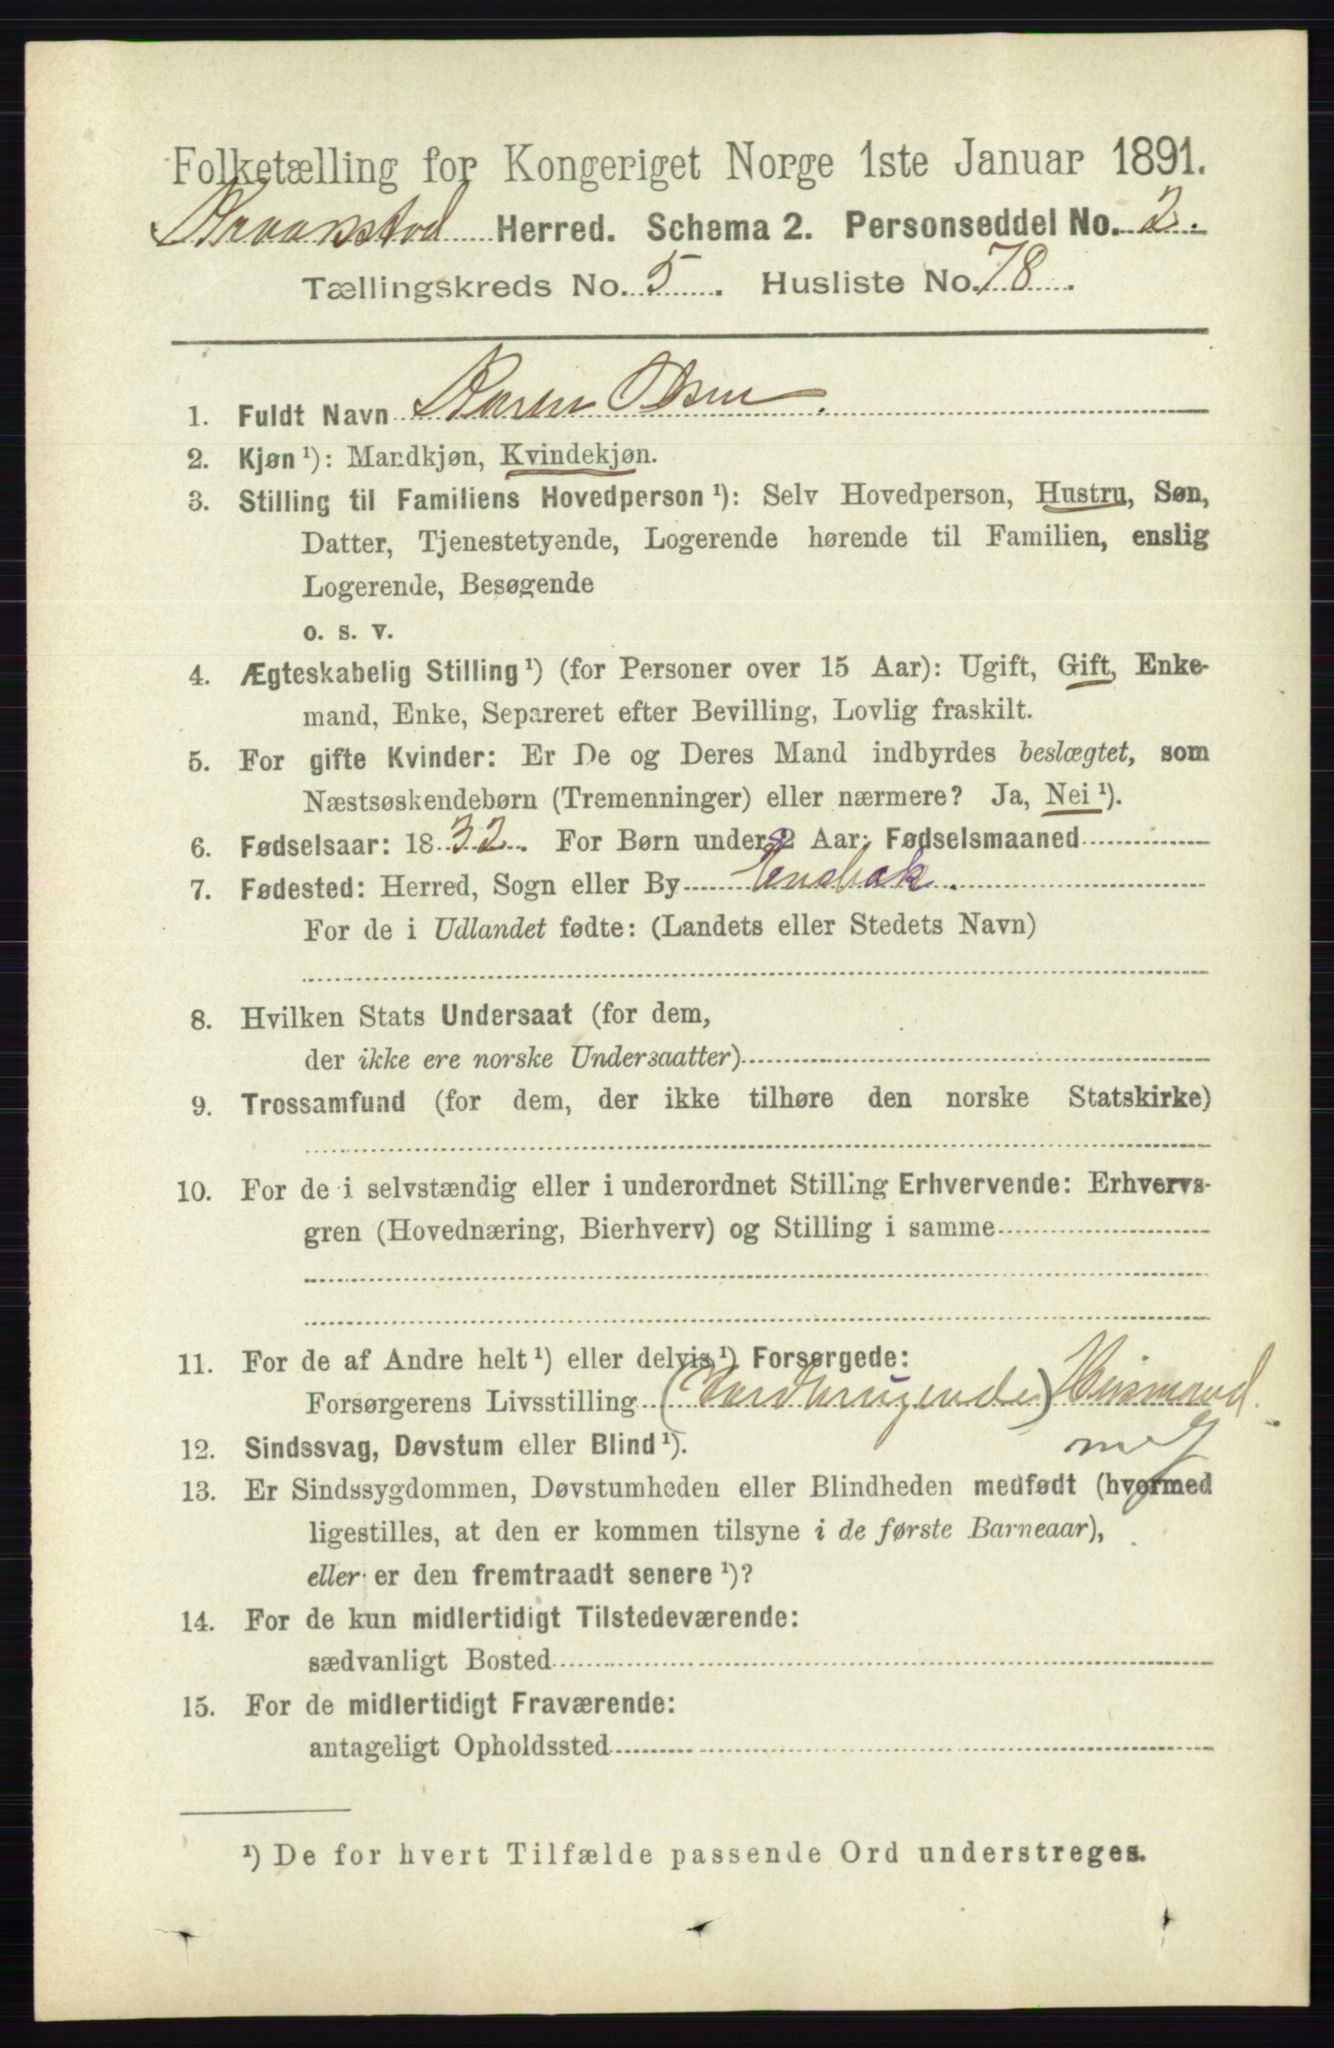 Folketælling for Kongeriget Norge 1ste Januar 1891.
Kraakstad Herred. Schema 2. Personseddel No. 2.
Tællingskreds No. 5. Husliste No. 78.
1. Fuldt Navn Karen Olsen.
2. Kjøn ¹): Mandkjøn, Kvindekjøn.
3. Stilling til Familiens Hovedperson ¹): Selv Hovedperson, Hustru, Søn,
Datter, Tjenestetyende, Logerende hørende til Familien, enslig
Logerende, Besøgende
o. s. v.
4. Ægteskabelig Stilling ¹) (for Personer over 15 Aar): Ugift, Gift, Enke-
mand, Enke, Separeret efter Bevilling, Lovlig fraskilt.
5. For gifte Kvinder: Er De og Deres Mand indbyrdes beslægtet, som
Næstsøskendebørn (Tremenninger) eller nærmere? Ja, Nei ¹).
6. Fødselsaar: 1832. For Børn under 2 Aar: Fødselsmaaned
7. Fødested: Herred, Sogn eller By Enebak.
For de i Udlandet fødte: (Landets eller Stedets Navn)
8. Hvilken Stats Undersaat (for dem,
der ikke ere norske Undersaatter)
9. Trossamfund (for dem, der ikke tilhøre den norske Statskirke)
10. For de i selvstændig eller i underordnet Stilling Erhvervende: Erhvervs-
gren (Hovednæring, Bierhverv) og Stilling i samme
11. For de af Andre helt ¹) eller delvis ¹) Forsørgede:
Forsørgerens Livsstilling (Jordbrugende) Husmand
12. Sindssvag, Døvstum eller Blind ¹). m J
13. Er Sindssygdommen, Døvstumheden eller Blindheden medfødt (hvormed
ligestilles, at den er kommen tilsyne i de første Barneaar),
eller er den fremtraadt senere ¹)?
14. For de kun midlertidigt Tilstedeværende:
sædvanligt Bosted
15. For de midlertidigt Fraværende:
antageligt Opholdssted
¹) De for hvert Tilfælde passende Ord understreges.